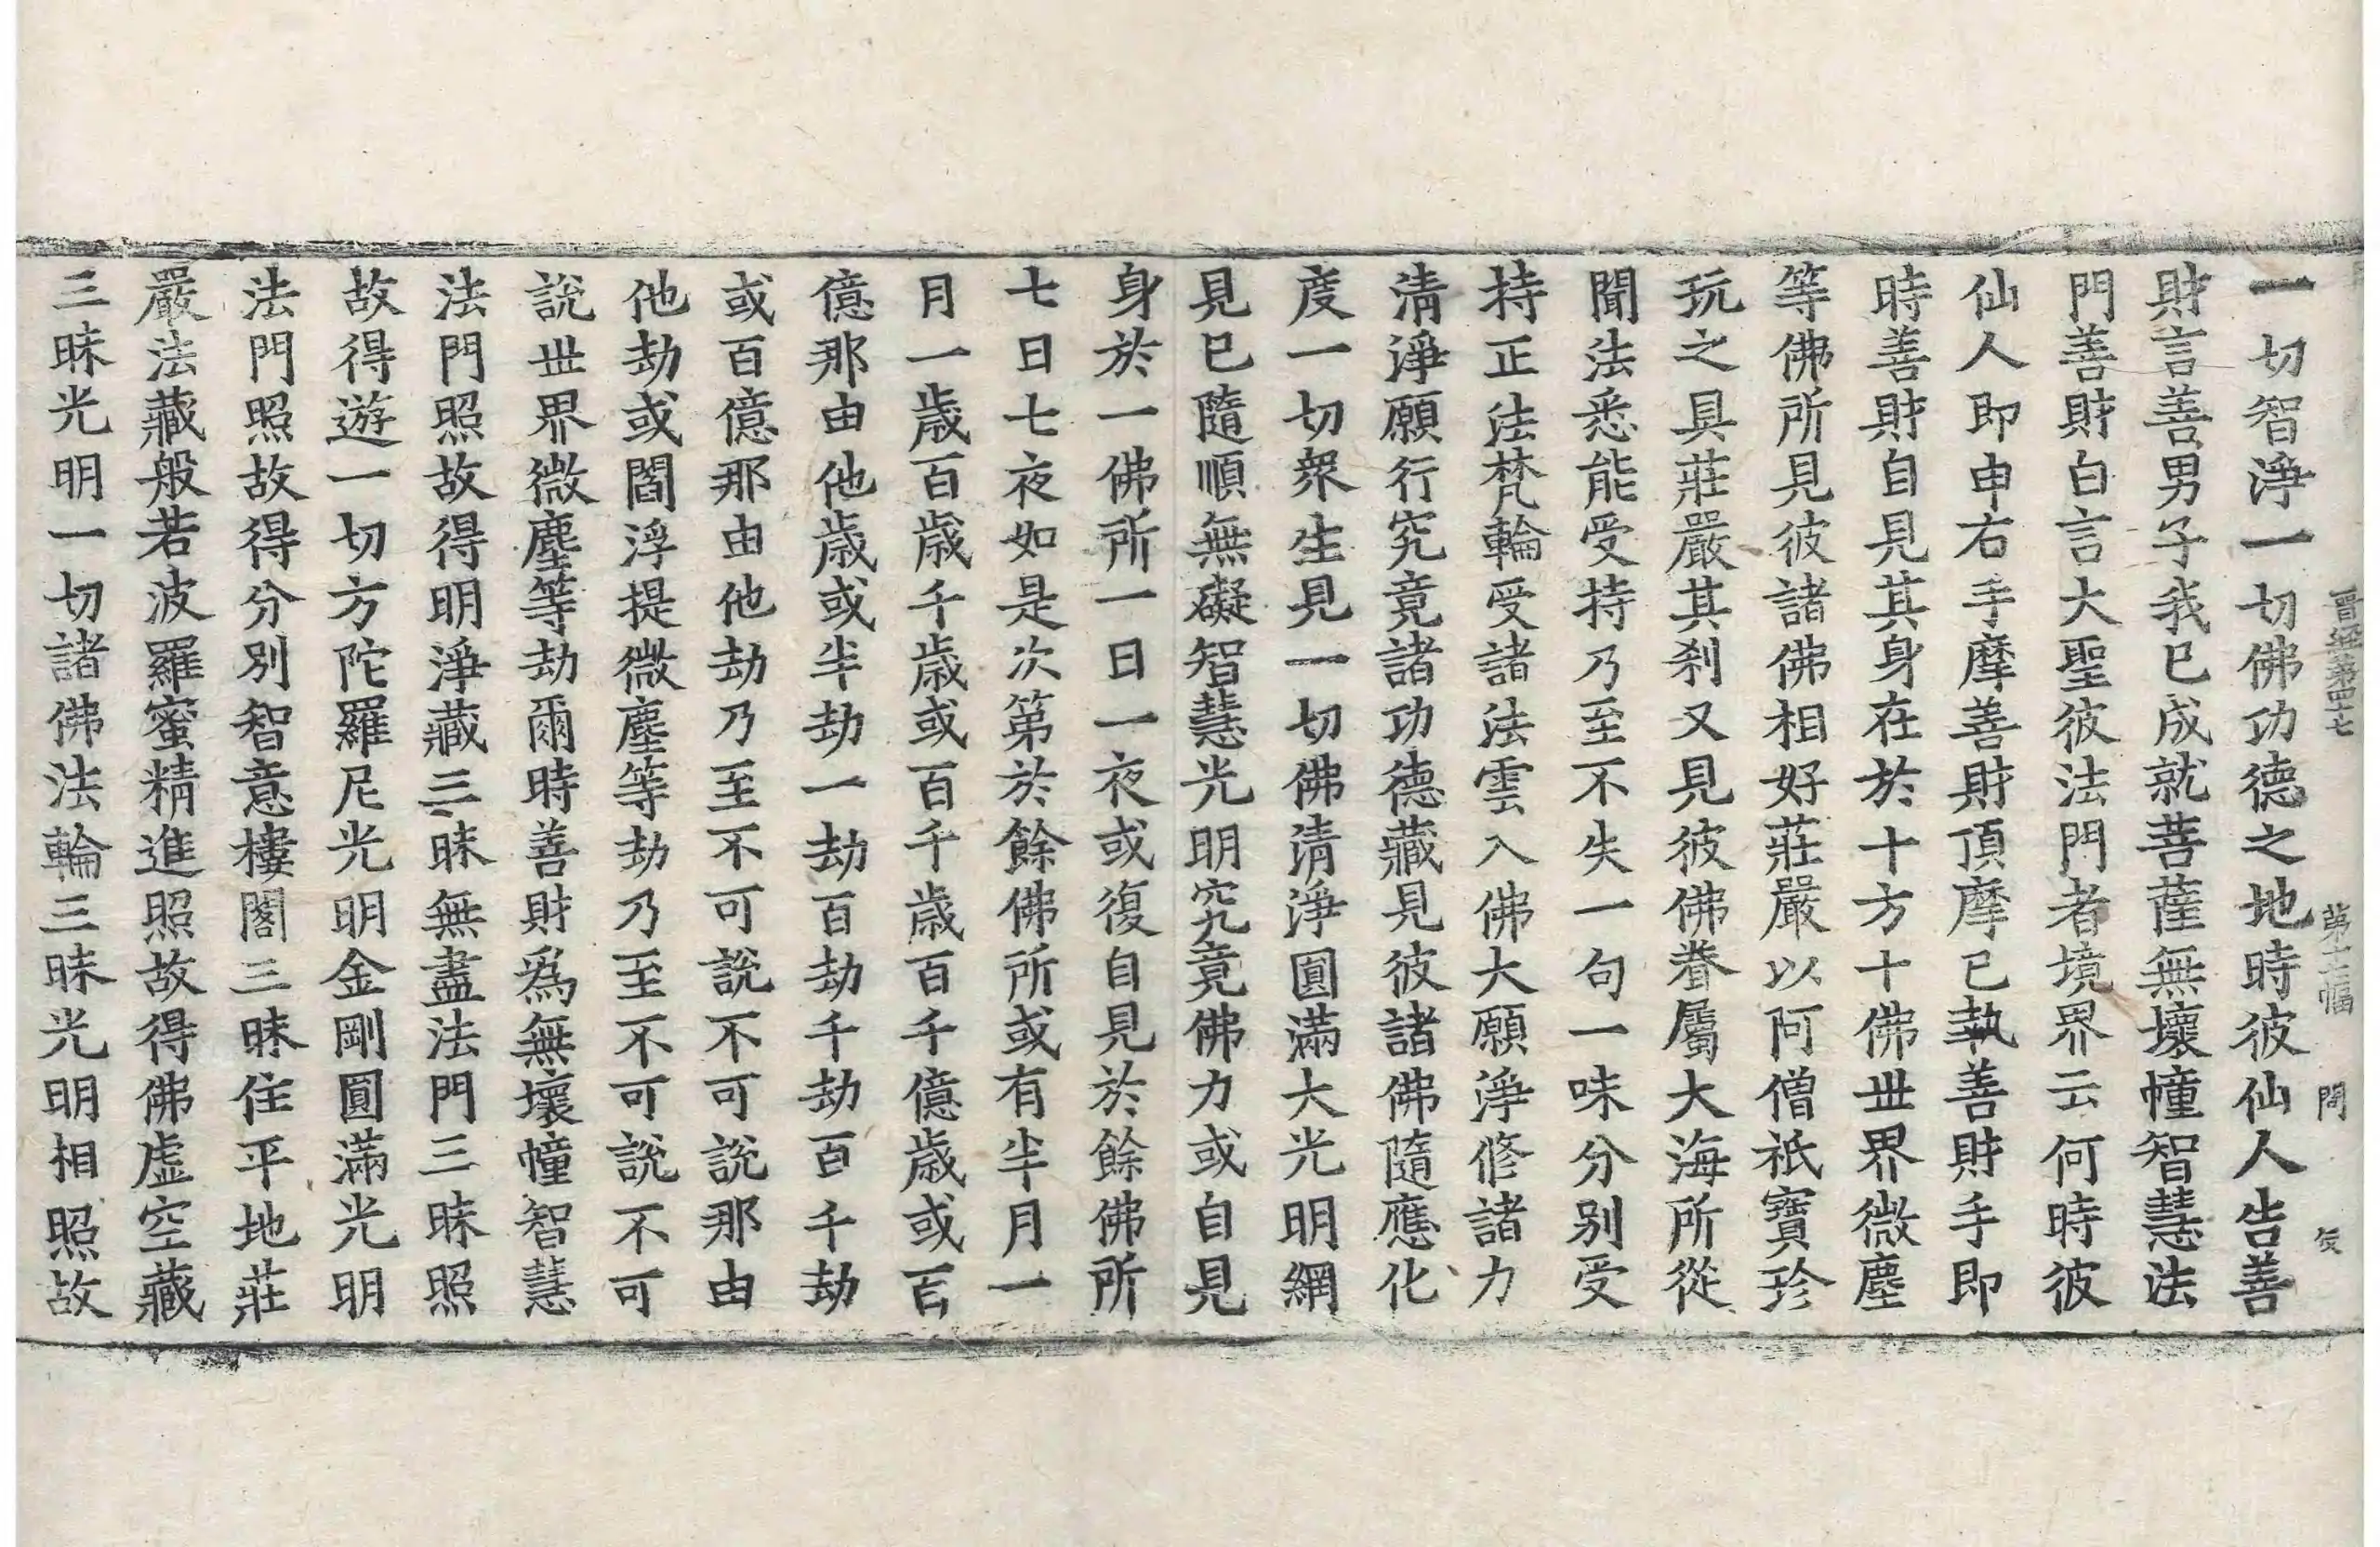 晋經第四十七　第十二幅　問
一切智淨一切佛功德之地時彼仙人告善
財言善男子我已成就菩薩無壞幢智慧法
門善財白言大聖彼法門者境界云何時彼
仙人即申右手摩善財頂摩已執善財手即
時善財自見其身在於十方十佛世界微塵
等佛所見彼諸佛相好莊嚴以阿僧祇寶珍
玩之具莊嚴其刹又見彼佛眷屬大海所從
聞法悉能受持乃至不失一句一味分别受
持正法梵輪受諸法雲入佛大願淨修諸力
清淨願行究竟諸功德藏見彼諸佛隨應化
度一切衆生見一切佛清淨圓滿大光明網
見已隨順無礙智慧光明究竟佛力或自見
身於一佛所一日一夜或復自見於餘佛所
七日七夜如是次第於餘佛所或有半月一
月一歳百歳千歳或百千歳百千億歳或百
億那由他歳或半劫一劫百劫千劫百千劫
或百億那由他劫乃至不可說不可說那由
他劫或閻浮提微塵等劫乃至不可說不可
說世界微塵等劫爾時善財爲無壞幢智慧
法門照故得明淨藏三昧無盡法門三昧照
故得遊一切方陀羅尼光明金剛圓滿光明
法門照故得分別智意樓閣三昧住平地莊
嚴法藏般若波羅蜜精進照故得佛虛空藏
三昧光明一切諸佛法輪三昧光明相照故